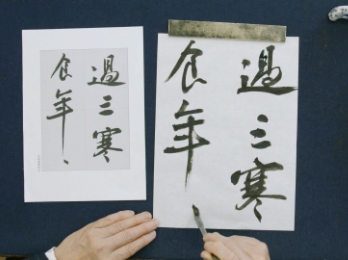 過三寒
食年、
過三寒
食年